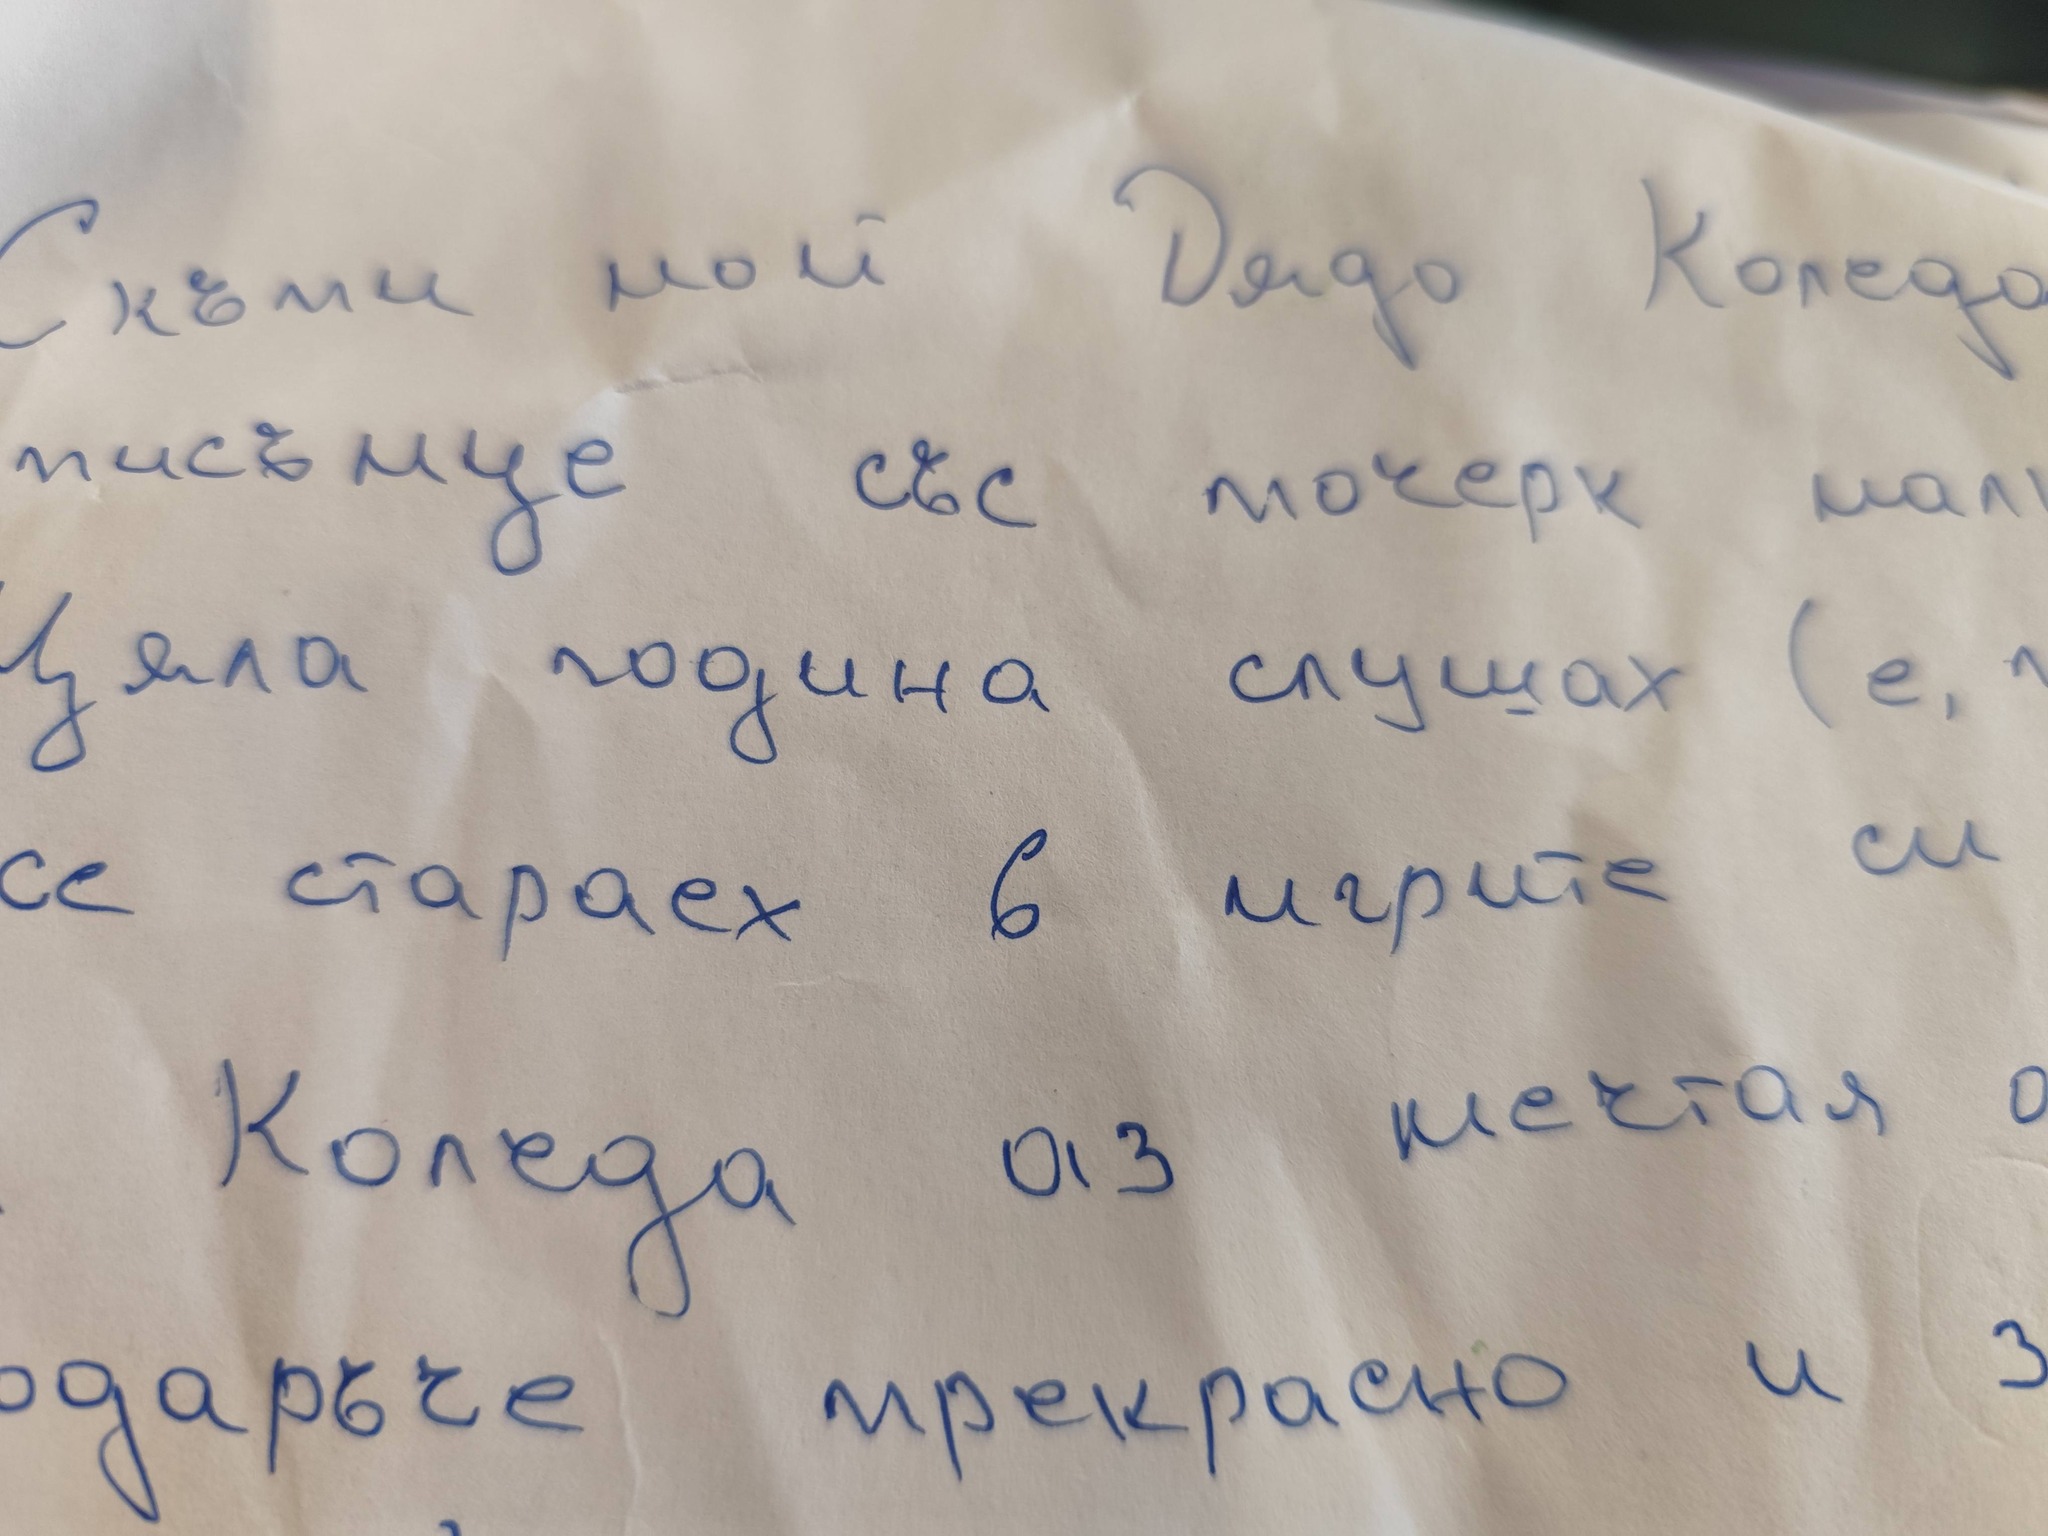 Скъпи мой Дядо Коледа
писъмце със почерк мал
Цяла година слушах (е,
се стараех в игрите си
Коледа аз мечтая о
одаръче прекрасно и з